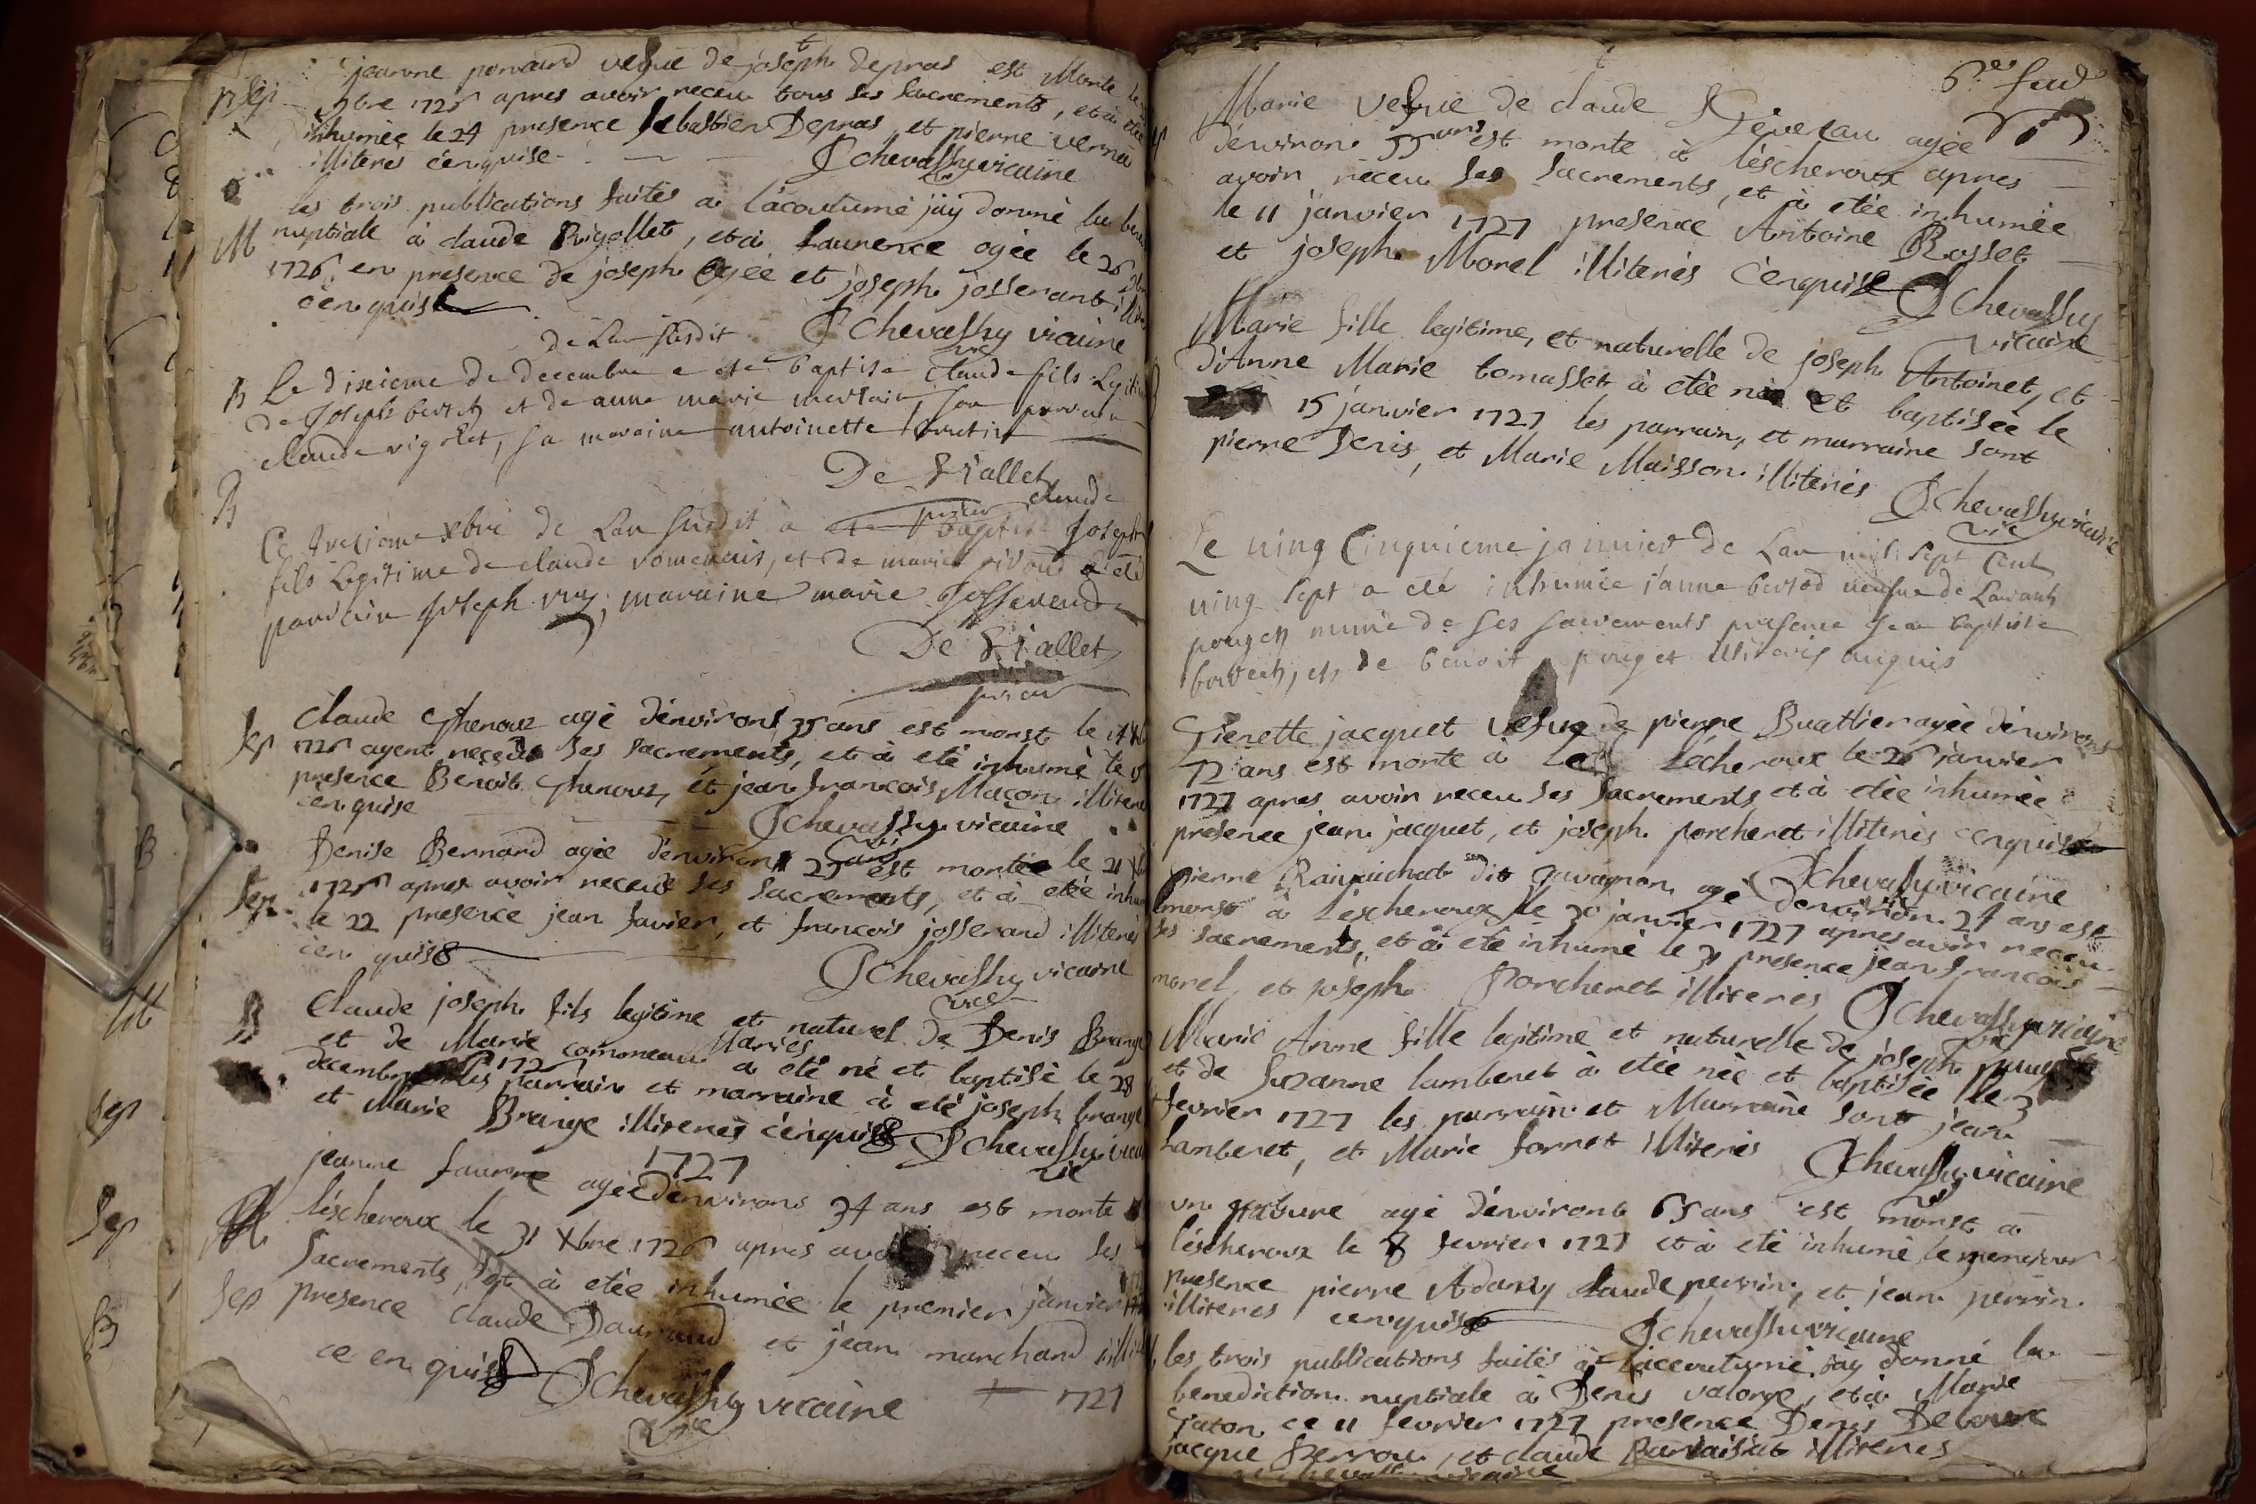 jeanne ponard vefue de joseph depras est Morte le
Sep 9bre 1726 apres avoir receu tous ses sacrements, et à etée
inhumée le 24 presence sebastien Depras, et pierre vernu
illiterés cenquise J chevassy vicaire
les trois publications faites à lácoutumé jáÿ donné la bene
M nuptiale à claude Rigollet, et à laurence ogée le 26 9bre
1726 en presence de joseph ogée et joseph josserant
cenquise J Chevassy vicaire
de Lan susdit
B Le dixieme de decembre a ete baptise claude fils legitime
de Joseph et de anne marie son parrain
claude rigolet, sa maraine antoinette
De Viallet
prieur
B Ce treziéme Xbre de Lan susdit à baptise claude Joseph
fils Legitime de claude romenais, et de marie à eté
parrain Joseph ruy, maraine marie Josserend
De Viallet
prieur
Sep Claude Thenouz agé dénvirons 35 ans est morst le
1726 ayent receus ses sacrements, et à eté inhumé le 15
presence Benoit Thenouz, et jean francois Maçon illiteres
cenquise J chevassy vicaire
Denise Bernard agée dénvirons 25 ans est morte le 21
Sep 1726 apres avoir receus ses sacrements, et à etée inhu
le 22 presence jean favier, et francois josserand illiterés
cen quise J chevassy vicaire
B Claude joseph fils legitime et naturel de Denis Brange
et de Marie commeau Mariés a eté né et baptisé le 28
decembre 1726 les parrain et marraine à eté joseph brange
et Marie Brange illiterés cénquise J chevassy vicaire
1727
jeanne faurre agée dénvirons 34 ans est morte à
léscheroux le 31 Xbre 1726 apres avoir receu ses
sacrements, et à etée inhumée le premier janvier
Sep presence claude Daurand et jean marchand
ce en quise J chevassy vicaire 1727
6e feud
Marie vefue de claude Geveyau agée
dénviron 55 ans est morte à léscheroux apres
avoir receu ses sacrements, et à etée inhumée
le 11 janvier 1727 presence Antoine Rosset
et joseph Morel illiterés cénquise J chevassy
vicaire
Marie fille legitime, et naturelle de joseph Antoinet, et
d'Anne Marie tomasset à etée née et baptisée le
15 janvier 1727 les parrain, et marraine sont
pierre Denis, et Marie Maisson illiterés J chevassy vicaire
Le uing Cinquieme januier de Lan mil sept Cent
uing sept a eté inhumée janne bertod uefue de Laurant
pouget munie de ses sacrements presence jean baptiste
et de benoit pouget illiteres anquis
Pierette jacquet vefue de pierre Buattier agée dénvirons
72 ans est morte à Lécheroux le 26 janvier
1727 apres avoir receu ses sacrements et à etée inhumée
presence jean jacquet, et joseph porcheret illiterés cenquise
J chevassy vicaire
pierre Ravaichat dit gavagnon agé dénviron 24 ans est
morst à Léscheroux le 30 janvier 1727 apres avoir receu
ses sacrements, et à eté inhumé le 31 presence jean francois
morel et joseph Porcheret illiteres J chevassy vicaire
Marie Anne fille legitime et naturelle de joseph
et de suzanne lamberet à etée née et baptisée le 3
fevrier 1727 les parrain et Marraine sont jean
Lamberet, et Marie fornet illiterés J chevassy vicaire
un pauvre agé dénvirons 65 ans est morst à
léscheroux le 8 fevrier 1727 et à eté inhumé le mesme jour
presence pierre Adam claude perrin, et jean perrin
illiteres cenquise J chevassy vicaire
les trois publications faites à láccoutumé jáy donné la
benediction nuptiale à Denis valonge, et à Marie
jaton ce 11 fevrier 1727 presence Denis Deboux
jacque perrou, et claude Ravaisiat illiteres